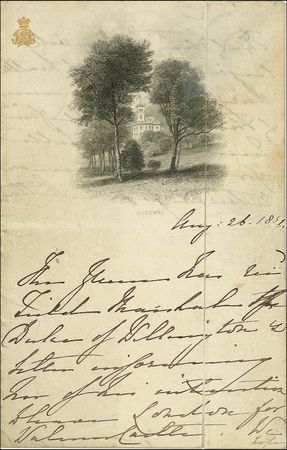 OSBORNE.
Aug: 26. 185
The Queen has rec
Field Marshal the
Duke of Wellington's
letter informing
her of his intention
to leave London for
Walmer Castle.